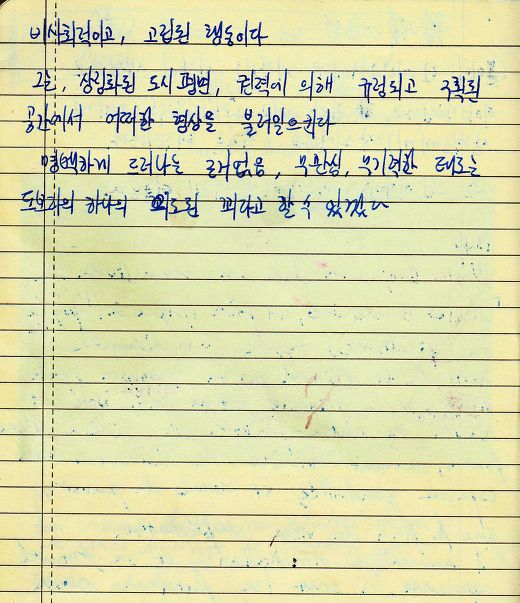 비사회적이고, 고립된 행동이다
그는, 상업화된 도시 평면, 권력에 의해 규정되고 구획된
공간에서 어떠한 형상을 불러일으킨다
명백하게 드러나는 근거없음, 무관심, 무기력한 태도는
도보자의 하나의 의도된 꾀라고 할 수 있겠다